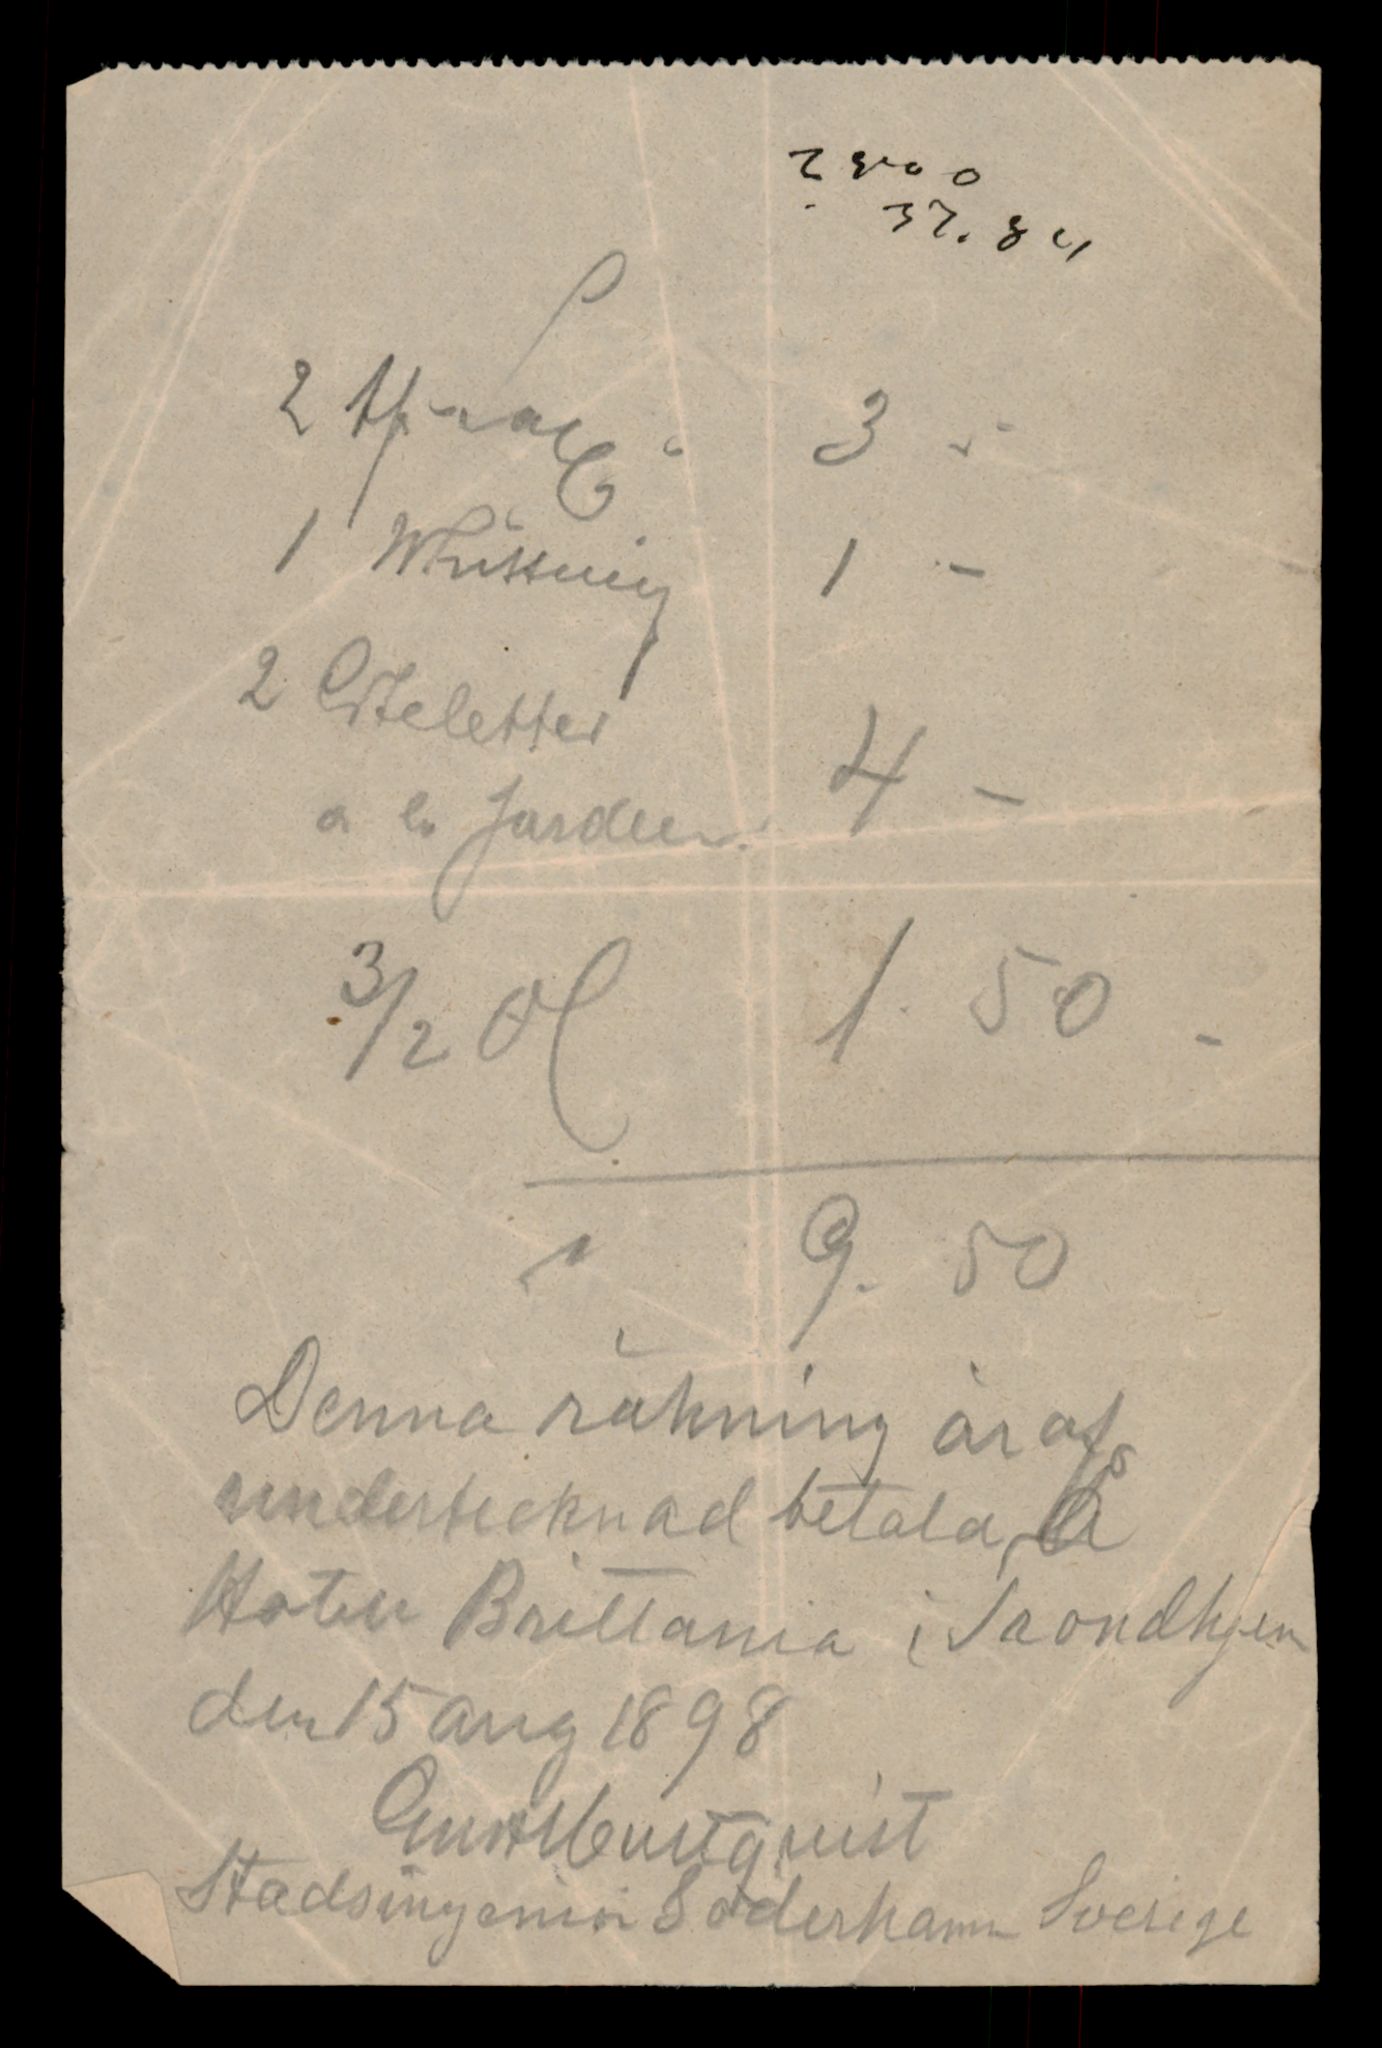 37.84
2 3 -
1 Whitting 1 -
2 Coteletter
a la Jardin. 4 -
3/2 Öl 1. 50 -
9. 50
Denna räkning är af
undertecknad betald å
Hotell Brittania i Trondhjem
den 15 aug 1898
Stadsingeniör Söderhamn Sverige